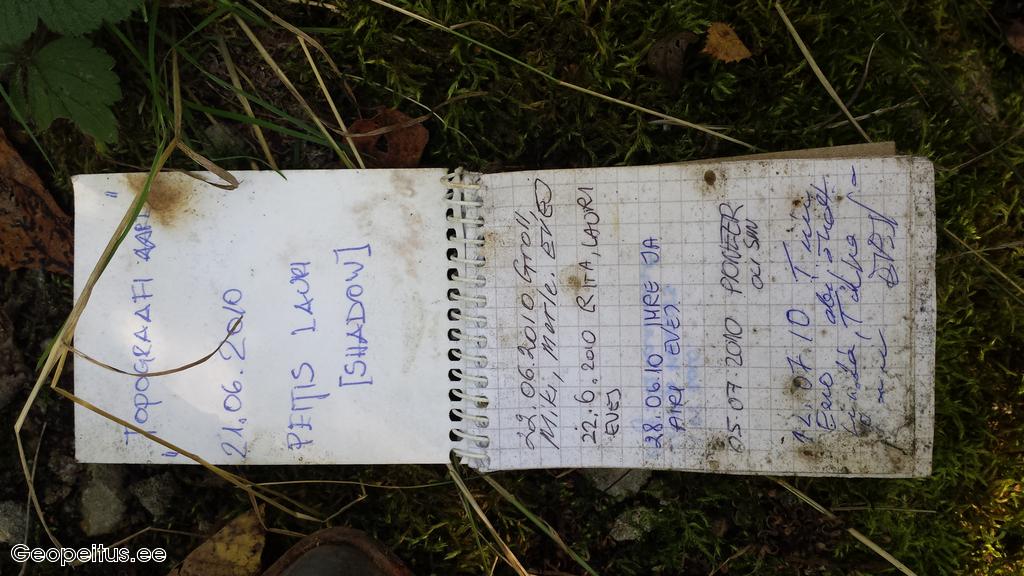 "TOPOGRAAFI
21.06.2010
PEITIS LAURI
[SHADOW]
22.06.2010 Groll,
Miki, Mertle. EVEJ
22.6.2010 RITA, LAURI
EVEJ
28.06.10 IMRE JA
AIRI EVEJ
05.07.2010 PIONEER
oli SIIN
12.07.10
Eero
EVEJ
Geopeitus.ee